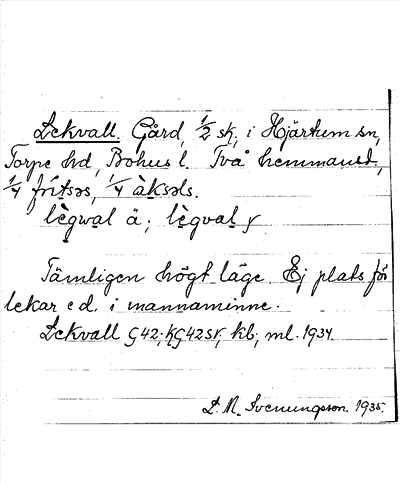 Lekvall. Gård, 1/2 sk, i Hjärtum sn,
Torpe hd, Bohus l. Två hemmansd.,
1/4 frítsəs, 1/4 àksəls.
lègwal ä; lègval y
Tämligen högt läge. Ej plats för
lekar e d. i mannaminne.
Lekvall G42; KG42SK, kb, ml. 1934
D. N. Svenungsson. 1935.